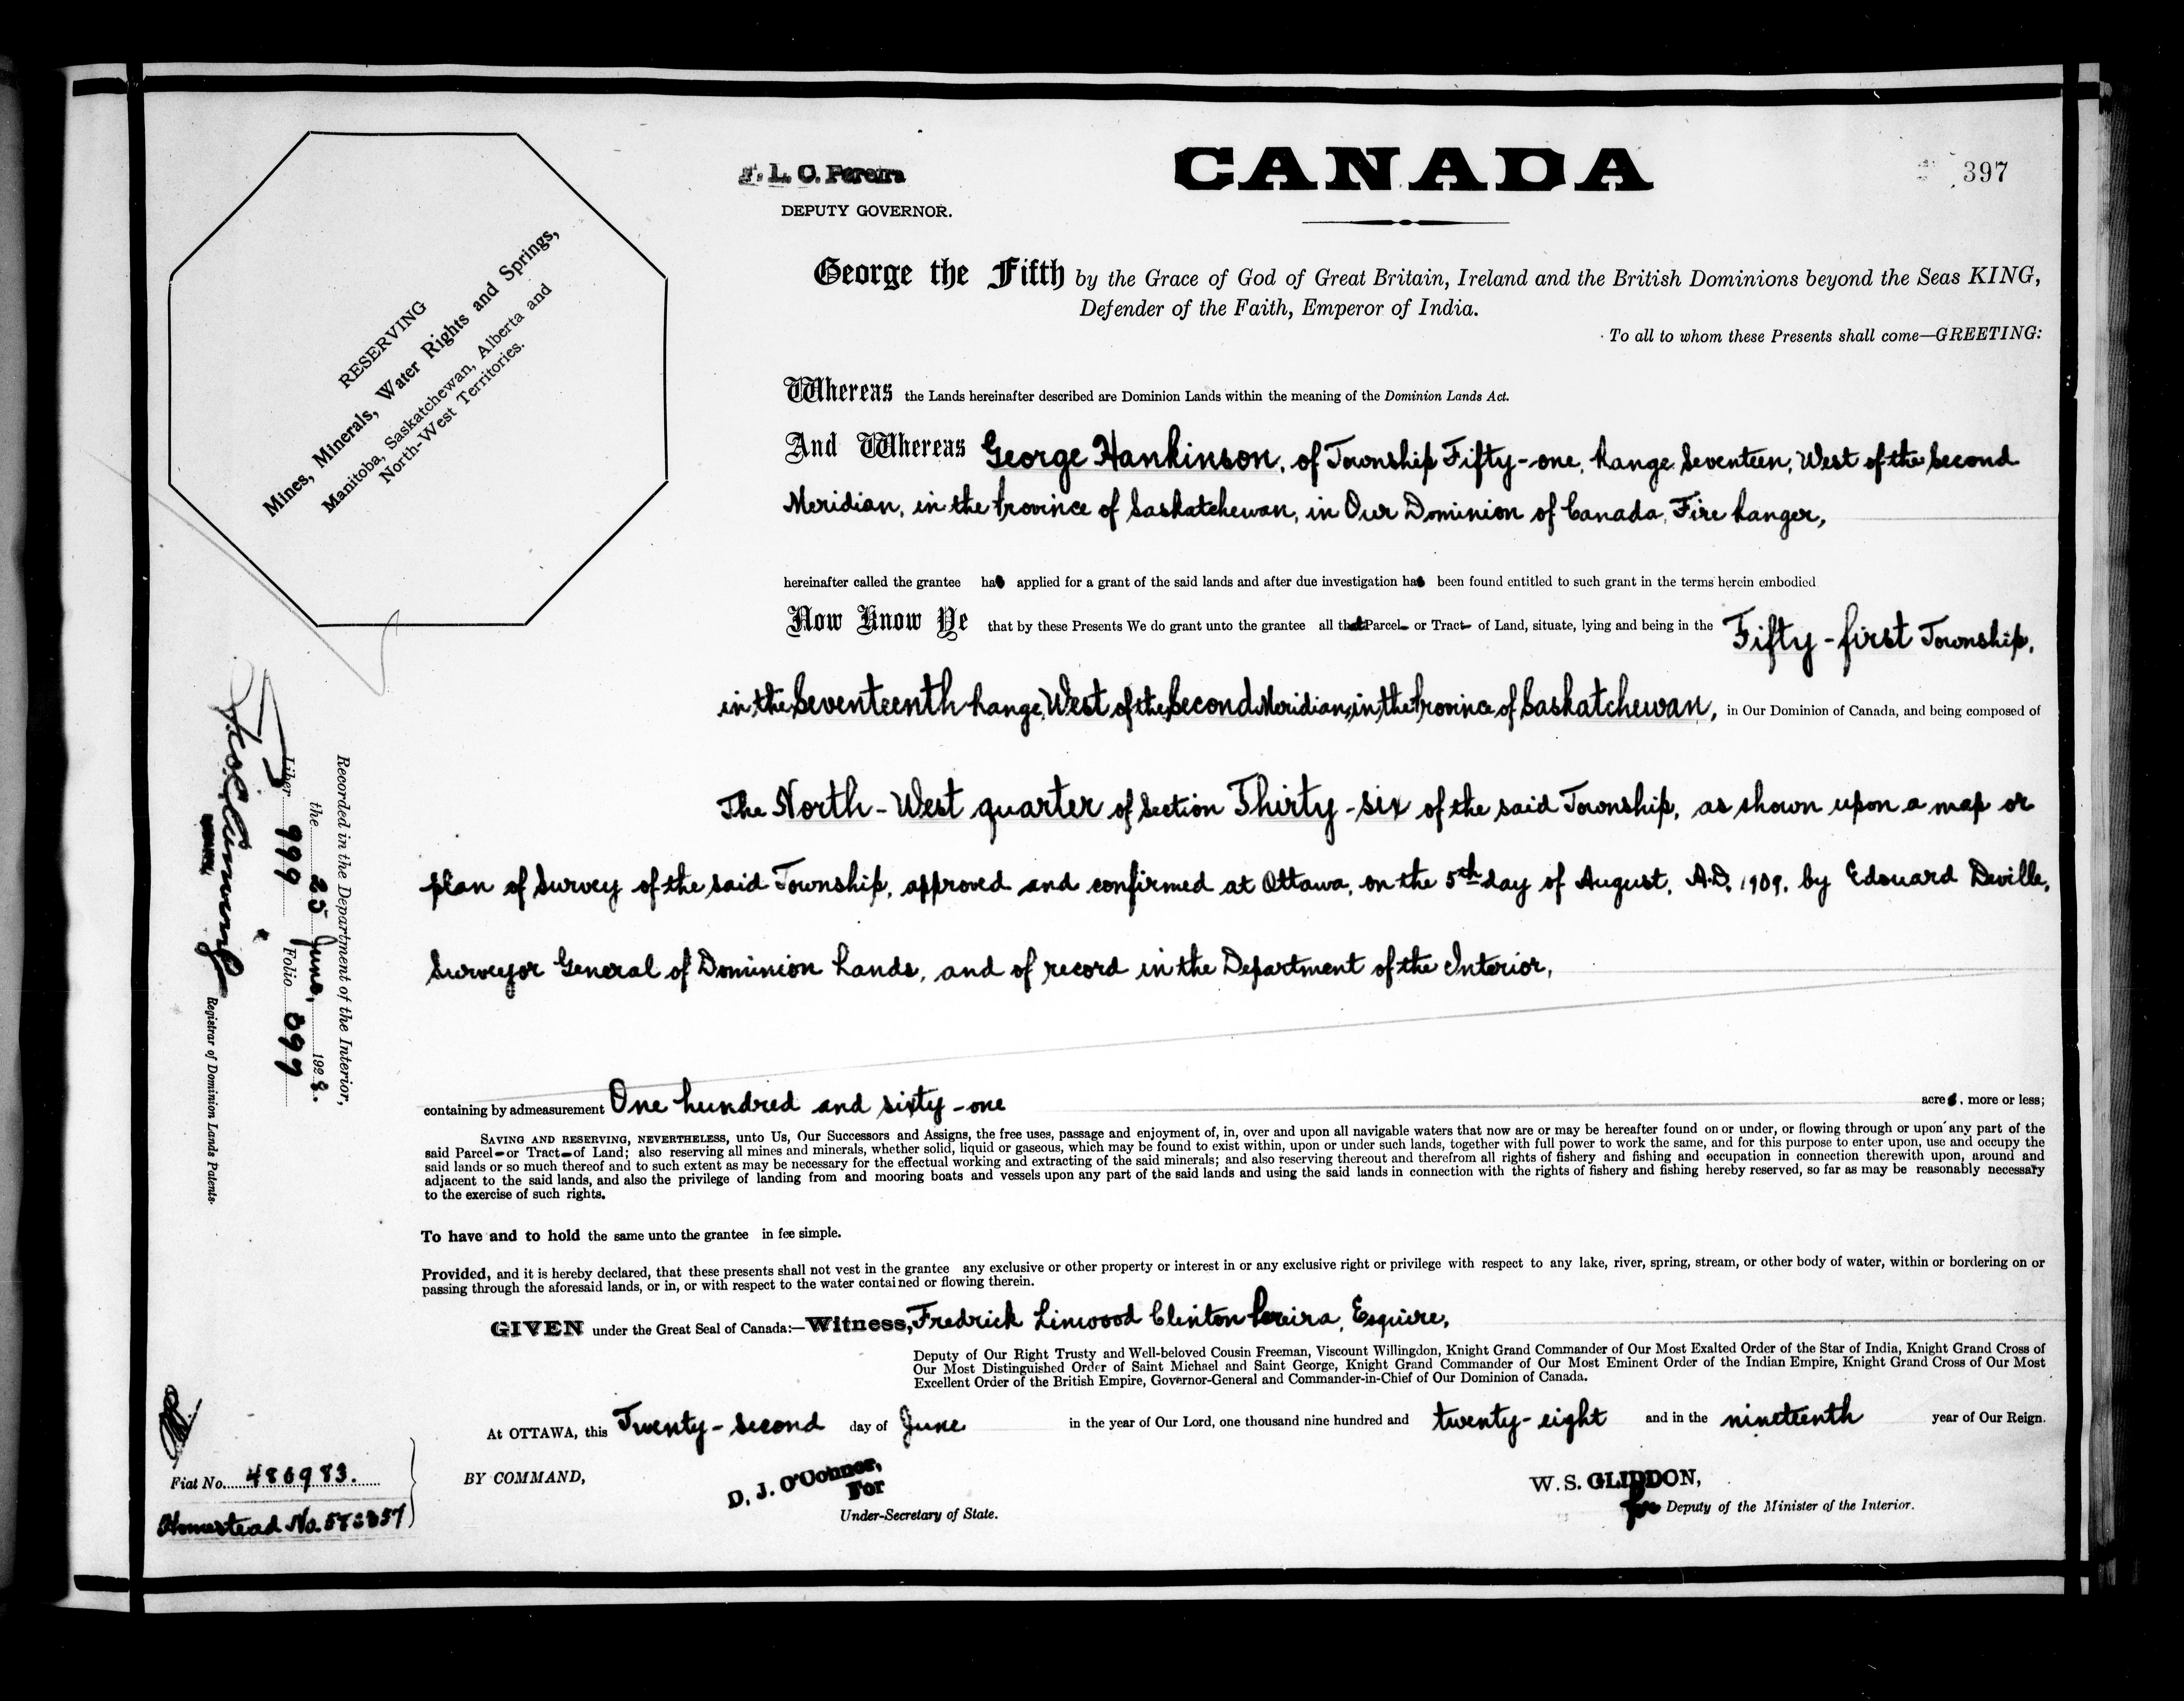 F. L. C. Pereira
DEPUTY GOVERNOR.
CANADA
397
RESERVING
Mines, Minerals, Water Rights and Springs,
Manitoba, Saskatchewan, Alberta and
North-West Territories.
George the Fifth by the Grace of God of Great Britain, Ireland and the British Dominions beyond the Seas KING,
Defender of the Faith, Emperor of India.
To all to whom these Presents shall come—GREETING:
Whereas the Lands hereinafter described are Dominion Lands within the meaning of the Dominion Lands Act.
And Whereas George Hankinson, of Township Fifty-one, Range Seventeen, West of the Second
Meridian, in the Province of Saskatchewan, in Our Dominion of Canada, Fire Ranger,
hereinafter called the grantee has applied for a grant of the said lands and after due investigation has been found entitled to such grant in the terms herein embodied
Now Know Ye that by these Presents We do grant unto the grantee all that Parcel or Tract of Land, situate, lying and being in the Fifty-first Township,
in the Seventeenth Range, West of the Second Meridian, in the Province of Saskatchewan, in Our Dominion of Canada, and being composed of
The North-West quarter of Section Thirty-six of the said Township, as shown upon a map or
plan of Survey of the said Township, approved and confirmed at Ottawa, on the 5th day of August, A.D. 1909, by Edouard Deville,
Surveyor General of Dominion Lands, and of record in the Department of the Interior,
containing by admeasurement One hundred and sixty-one acres, more or less;
SAVING AND RESERVING, NEVERTHELESS, unto Us, Our Successors and Assigns, the free uses, passage and enjoyment of, in, over and upon all navigable waters that now are or may be hereafter found on or under, or flowing through or upon any part of the
said Parcel or Tract of Land; also reserving all mines and minerals, whether solid, liquid or gaseous, which may be found to exist within, upon or under such lands, together with full power to work the same, and for this purpose to enter upon, use and occupy the
said lands or so much thereof and to such extent as may be necessary for the effectual working and extracting of the said minerals; and also reserving thereout and therefrom all rights of fishery and fishing and occupation in connection therewith upon, around and
adjacent to the said lands, and also the privilege of landing from and mooring boats and vessels upon any part of the said lands and using the said lands in connection with the rights of fishery and fishing hereby reserved, so far as may be reasonably necessary
to the exercise of such rights.
To have and to hold the same unto the grantee in fee simple.
Provided, and it is hereby declared, that these presents shall not vest in the grantee any exclusive or other property or interest in or any exclusive right or privilege with respect to any lake, river, spring, stream, or other body of water, within or bordering on or
passing through the aforesaid lands, or in, or with respect to the water contained or flowing therein.
GIVEN under the Great Seal of Canada:—Witness, Fredrick Linwood Clinton Pereira, Esquire,
Deputy of Our Right Trusty and Well-beloved Cousin Freeman, Viscount Willingdon, Knight Grand Commander of Our Most Exalted Order of the Star of India, Knight Grand Cross of
Our Most Distinguished Order of Saint Michael and Saint George, Knight Grand Commander of Our Most Eminent Order of the Indian Empire, Knight Grand Cross of Our Most
Excellent Order of the British Empire, Governor-General and Commander-in-Chief of Our Dominion of Canada.
At OTTAWA, this Twenty-second day of June in the year of Our Lord, one thousand nine hundred and twenty-eight and in the nineteenth year of Our Reign.
BY COMMAND,
D. J. O'Connor,
For
Under-Secretary of State.
W. S. GLIDDON,
for Deputy of the Minister of the Interior.
Recorded in the Department of the Interior,
the 25 June, 1928.
Liber 999 Folio 397
Registrar of Dominion Lands Patents.
Fiat No. 486983.
Homestead No.